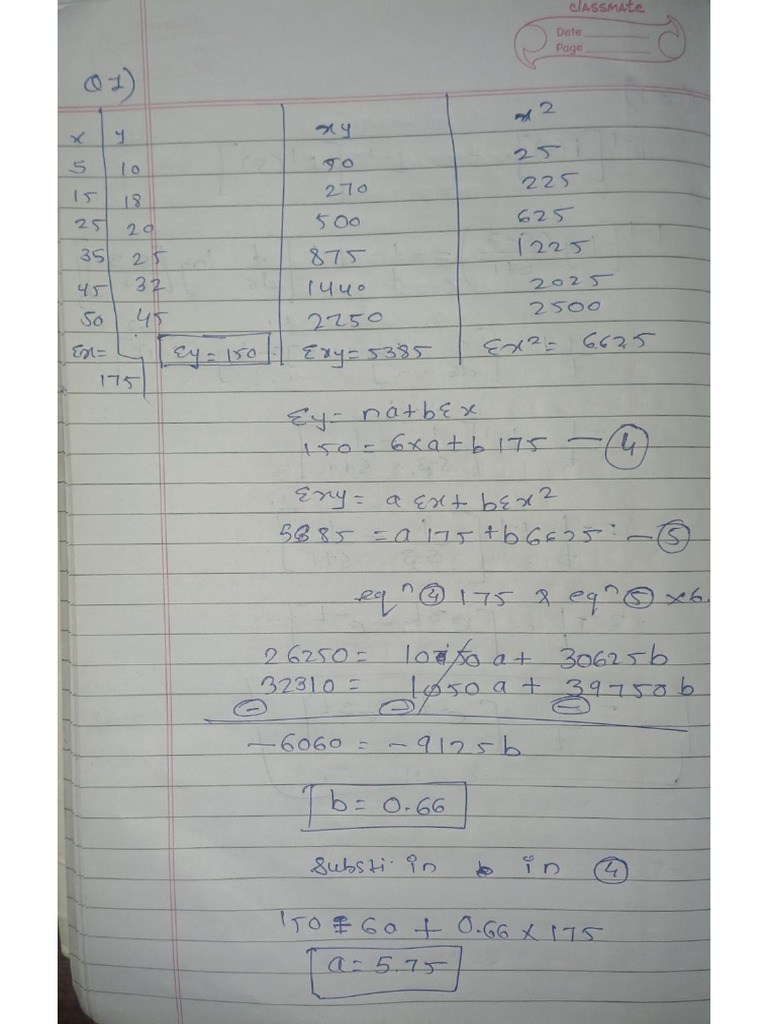 classmate
Date
Page
Q1)
x y xy x²
5 10 50 25
15 18 270 225
25 20 500 625
35 25 875 1225
45 32 1440 2025
50 45 2250 2500
Σx= 175 Σy = 150 Σxy = 5385 Σx² = 6625
Σy = na+bΣx
150 = 6xa+b 175 — ④
Σxy = a Σx+ bΣx²
5385 = a 175 + b 6625 — ⑤
eqⁿ ④ 175 & eqⁿ ⑤ x6
26250 = 1050 a + 30625b
32310 = 1050 a + 39750 b
⊖ ⊖ ⊖
-6060 = -9125b
b = 0.66
Substi. in b in ④
150 = 6a + 0.66 x 175
a = 5.75